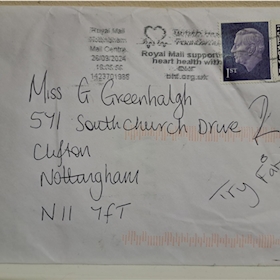 Royal Mail
Nottingham
Mail Centre
26/09/2024
British Heart
Foundation
Royal Mail supports
heart health with
BHF
bhf.org.uk
1ST
Miss G Greenhalgh
571 Southchurch Drive
Clifton
Nottingham
N11 7FT
Try